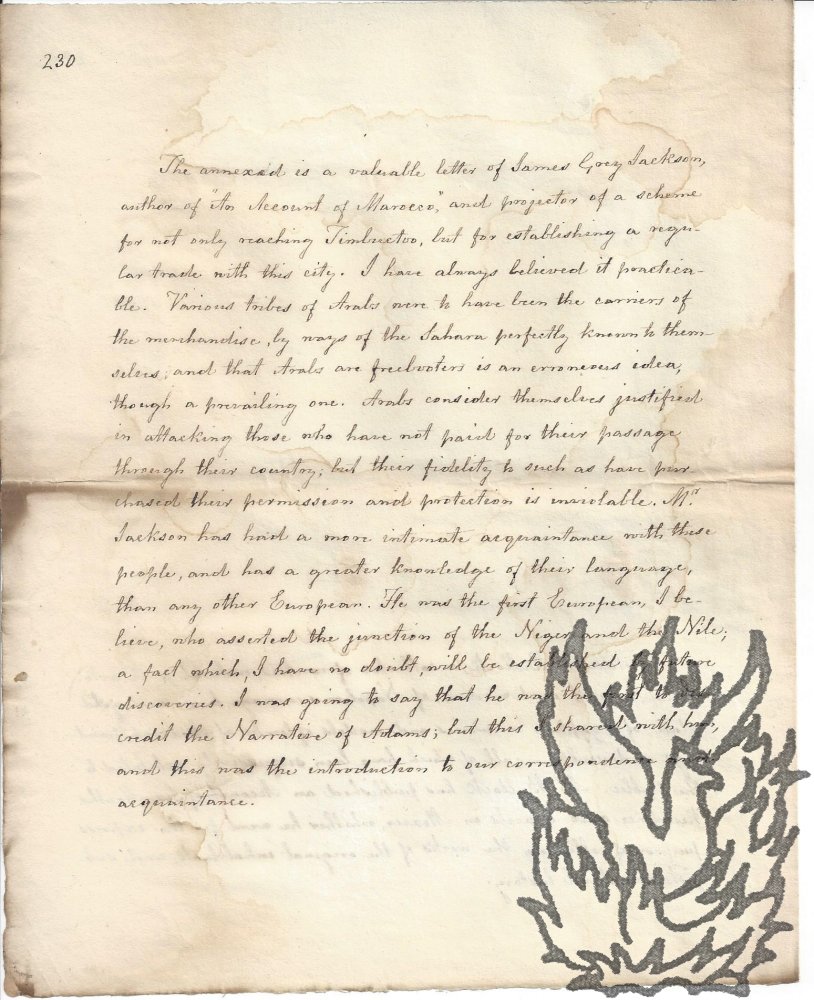 230
The annexed is a valuable letter of James Grey Jackson,
author of "An Account of Marocco", and projector of a scheme
for not only reaching Timbuctoo, but for establishing a regu-
lar trade with this city. I have always believed it practica-
ble. Various tribes of Arabs were to have been the carriers of
the merchandise, by ways of the Sahara perfectly known to them-
selves; and that Arabs are freebooters is an erroneous idea,
though a prevailing one. Arabs consider themselves justified
in attacking those who have not paid for their passage
through their country; but their fidelity to such as have pur
chased their permission and protection is inviolable. Mr.
Jackson has had a more intimate acquaintance with these
people, and has a greater knowledge of their language,
than any other European. He was the first European, I be-
lieve, who asserted the junction of the Niger and the Nile;
a fact which, I have no doubt, will be established by future
discoveries. I was going to say that he was the first to dis-
credit the Narrative of Adams; but this I shared with him,
and this was the introduction to our correspondence and
acquaintance.